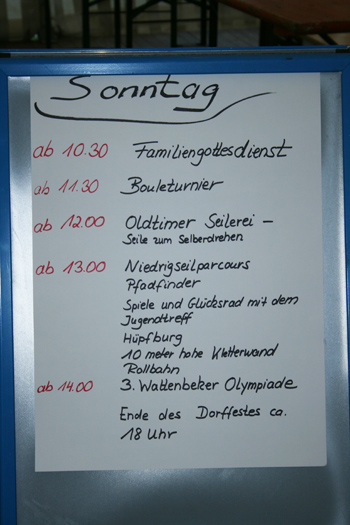 Sonntag
ab 10.30 Familiengottesdienst
ab 11.30 Bouleturnier
ab 12.00 Oldtimer Seilerei –
Seile zum Selberdrehen
ab 13.00 Niedrigseilparcours
Pfadfinder
Spiele und Glücksrad mit dem
Jugendtreff
Hüpfburg
10 meter hohe Kletterwand
Rollbahn
ab 14.00 3. Wattenbeker Olympiade
Ende des Dorffestes ca.
18 Uhr